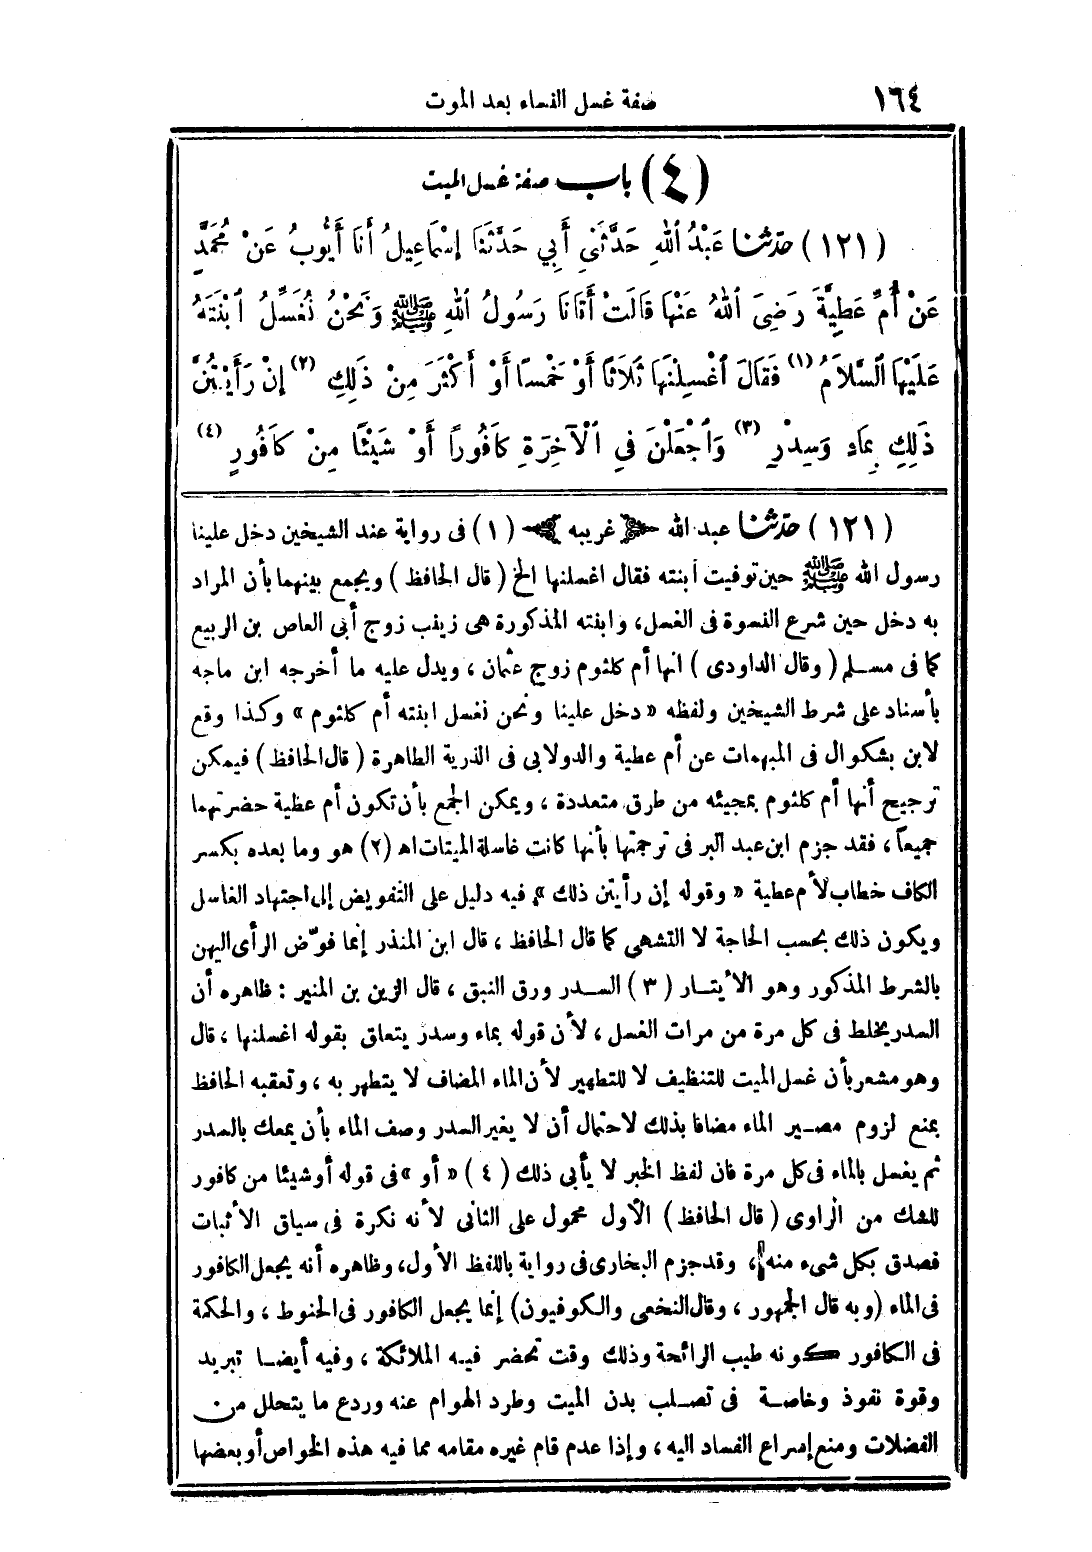 ١٦٤ صفة غسل النساء بعد الموت
(٤) باب صفة غسل الميت
(١٢١) حدّثنا عَبْدُ اللهِ حَدَّثَنِي أَبِي حَدَّثَنَا إِسْمَاعِيلُ أَنَا أَيُّوبُ عَنْ مُحَمَّدٍ
عَنْ أُمِّ عَطِيَّةَ رَضِيَ اللهُ عَنْهَا قَالَتْ أَتَانَا رَسُولُ اللهِ ﷺ وَنَحْنُ نُغَسِّلُ ابْنَتَهُ
عَلَيْهَا السَّلَامُ (١) فَقَالَ اغْسِلْنَهَا ثَلَاثًا أَوْ خَمْسًا أَوْ أَكْثَرَ مِنْ ذَلِكِ (٢) إِنْ رَأَيْتُنَّ
ذَلِكِ بِمَاءٍ وَسِدْرٍ (٣) وَاجْعَلْنَ فِي الْآخِرَةِ كَافُورًا أَوْ شَيْئًا مِنْ كَافُورٍ (٤)
(١٢١) حدّثنا عبد الله غريبه (١) فى رواية عند الشيخين دخل علينا
رسول الله ﷺ حين توفيت ابنته فقال اغسلنها الخ (قال الحافظ) ويجمع بينهما بأن المراد
به دخل حين شرع النسوة فى الغسل، وابنته المذكورة هى زينب زوج أبى العاص بن الربيع
كما فى مسلم (وقال الداودى) انها أم كلثوم زوج عثمان، ويدل عليه ما أخرجه ابن ماجه
بأسناد على شرط الشيخين ولفظه «دخل علينا ونحن نغسل ابنته أم كلثوم» وكذا وقع
لابن بشكوال فى المبهمات عن أم عطية والدولابى فى الذرية الطاهرة (قال الحافظ) فيمكن
ترجيح أنها أم كلثوم بمجيئه من طرق متعددة، ويمكن الجمع بأن تكون أم عطية حضرتهما
جميعاً، فقد جزم ابن عبد البر فى ترجمتها بأنها كانت غاسلة الميتات اه (٢) هو وما بعده بكسر
الكاف خطاب لأم عطية «وقوله إن رأيتن ذلك» فيه دليل على التفويض إلى اجتهاد الغاسل
ويكون ذلك بحسب الحاجة لا التشهى كما قال الحافظ، قال ابن المنذر إنما فوّض الرأى اليهن
بالشرط المذكور وهو الأيتار (٣) السدر ورق النبق، قال الزين بن المنير : ظاهره أن
السدر يخلط فى كل مرة من مرات الغسل، لأن قوله بماء وسدر يتعلق بقوله اغسلنها، قال
وهو مشعر بأن غسل الميت للتنظيف لا للتطهير لأن الماء المضاف لا يتطهر به، وتعقبه الحافظ
بمنع لزوم مصير الماء مضافا بذلك لاحتمال أن لا يغير السدر وصف الماء بأن يمعك بالسدر
ثم يغسل بالماء فى كل مرة فان لفظ الخبر لا يأبى ذلك (٤) «أو» فى قوله أو شيئا من كافور
للشك من الراوى (قال الحافظ) الأول محمول على الثانى لأنه نكرة فى سياق الأثبات
فصدق بكل شىء منه، وقد جزم البخارى فى رواية باللفظ الأول، وظاهره أنه يجعل الكافور
فى الماء (وبه قال الجمهور، وقال النخعى والكوفيون) إنما يجعل الكافور فى الحنوط، والحكمة
فى الكافور كونه طيب الرائحة وذلك وقت تحضر فيه الملائكة، وفيه أيضا تبريد
وقوة نفوذ وخاصة فى تصلب بدن الميت وطرد الهوام عنه وردع ما يتحلل من
الفضلات ومنع إسراع الفساد اليه، وإذا عدم قام غيره مقامه مما فيه هذه الخواص أو بعضها